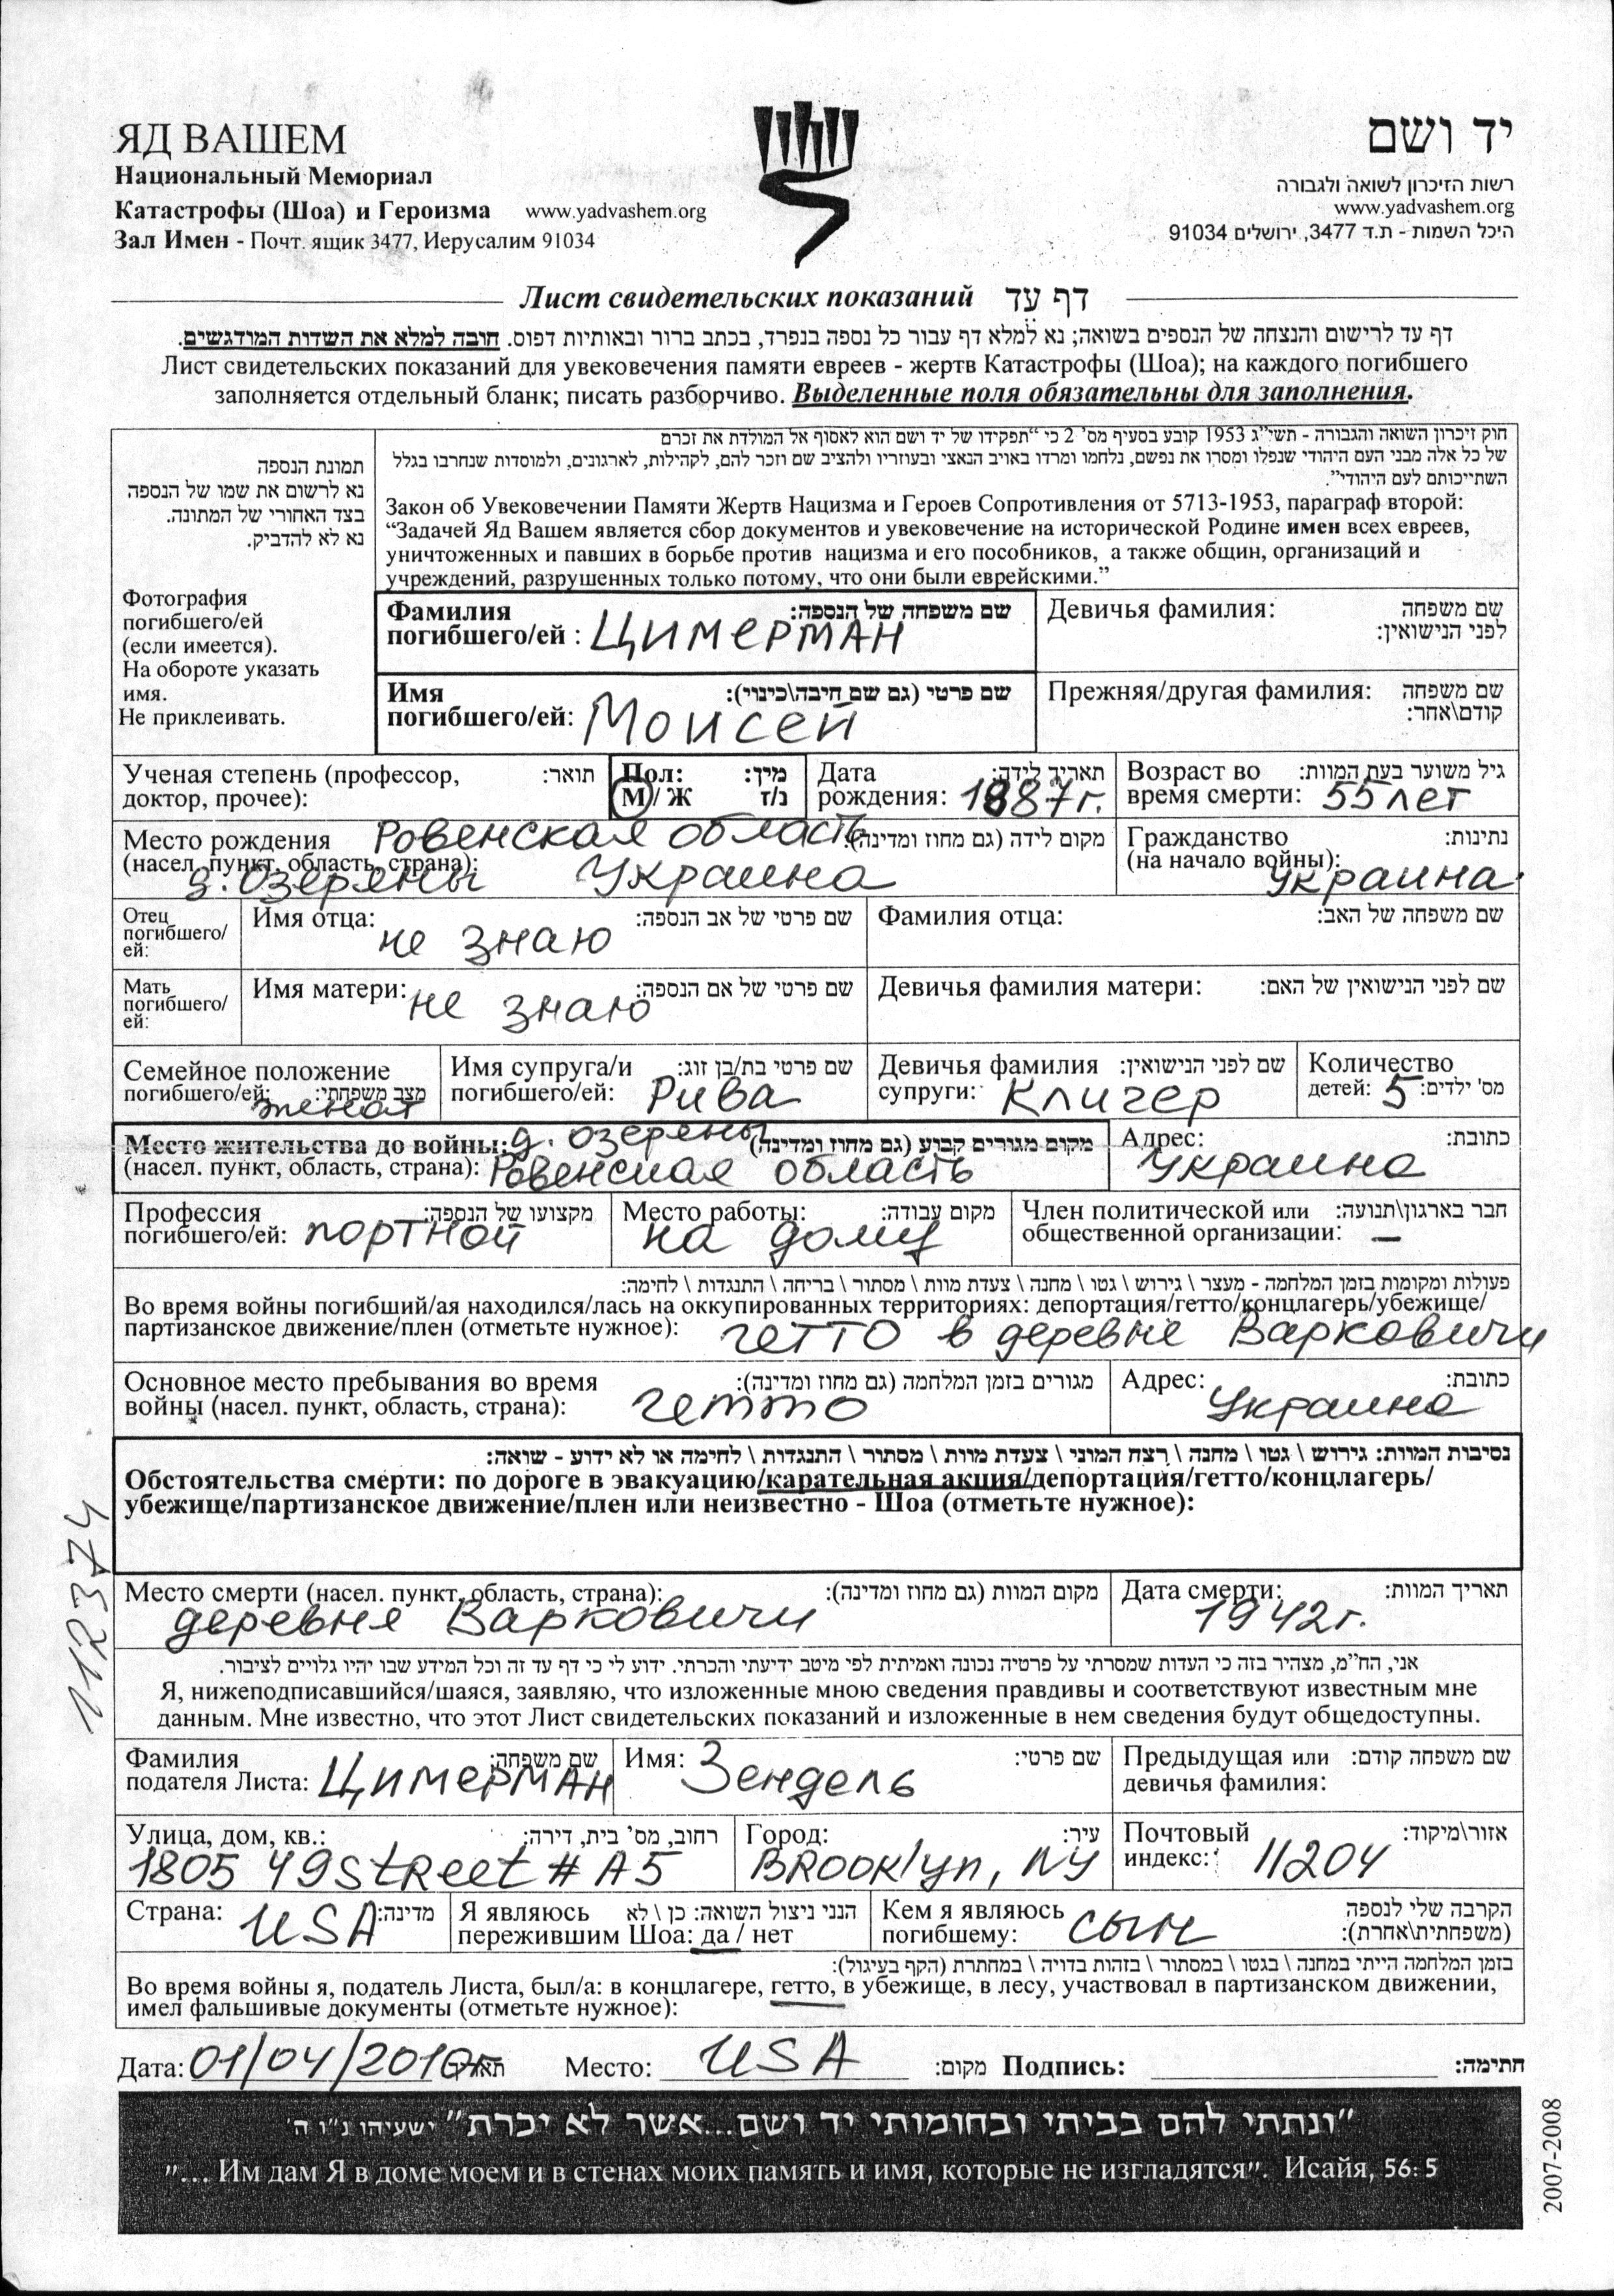 ЯД ВАШЕМ
Национальный Мемориал
Катастрофы (Шоа) и Героизма www.yadvashem.org
Зал Имен - Почт. ящик 3477, Иерусалим 91034
יד ושם
רשות הזיכרון לשואה ולגבורה
www.yadvashem.org
היכל השמות - ת.ד 3477, ירושלים 91034
Лист свидетельских показаний דף עד
דף עד לרישום והנצחה של הנספים בשואה; נא למלא דף עבור כל נספה בנפרד, בכתב ברור ובאותיות דפוס. חובה למלא את השדות המודגשים.
Лист свидетельских показаний для увековечения памяти евреев - жертв Катастрофы (Шоа); на каждого погибшего
заполняется отдельный бланк; писать разборчиво. Выделенные поля обязательны для заполнения.
תמונת הנספה
נא לרשום את שמו של הנספה
בצד האחורי של המתונה.
נא לא להדביק.
Фотография
погибшего/ей
(если имеется).
На обороте указать
имя.
Не приклеивать.
חוק זיכרון השואה והגבורה - תשי"ג 1953 קובע בסעיף מס' 2 כי "תפקידו של יד ושם הוא לאסוף אל המולדת את זכרם
של כל אלה מבני העם היהודי שנפלו ומסרו את נפשם, נלחמו ומרדו באויב הנאצי ובעוזריו ולהציב שם וזכר להם, לקהילות, לארגונים, ולמוסדות שנחרבו בגלל
השתייכותם לעם היהודי".
Закон об Увековечении Памяти Жертв Нацизма и Героев Сопротивления от 5713-1953, параграф второй:
“Задачей Яд Вашем является сбор документов и увековечение на исторической Родине имен всех евреев,
уничтоженных и павших в борьбе против нацизма и его пособников, а также общин, организаций и
учреждений, разрушенных только потому, что они были еврейскими.”
Фамилия שם משפחה של הנספה:
погибшего/ей : Цимерман
Девичья фамилия: שם משפחה
לפני הנישואין:
Имя שם פרטי (גם שם חיבה\כינוי):
погибшего/ей: Моисей
Прежняя/другая фамилия: שם משפחה
קודם\אחר:
Ученая степень (профессор, תואר:
доктор, прочее):
Пол: מין:
М / Ж ז/נ
Дата תאריך לידה:
рождения: 1887г.
Возраст во גיל משוער בעת המוות:
время смерти: 55 лет
Место рождения Ровенская область מקום לידה (גם מחוז ומדינה):
(насел. пункт, область, страна):
д. Озеряны Украина
Гражданство נתינות:
(на начало войны):
Украина
Отец
погибшего/
ей:
Имя отца: שם פרטי של אב הנספה:
не знаю
Фамилия отца: שם משפחה של האב:
Мать
погибшего/
ей:
Имя матери: שם פרטי של אם הנספה:
не знаю
Девичья фамилия матери: שם לפני הנישואין של האם:
Семейное положение
погибшего/ей: מצב משפחתי:
женат
Имя супруга/и שם פרטי בת/בן זוג:
погибшего/ей: Рива
Девичья фамилия שם לפני הנישואין:
супруги: Клигер
Количество
детей: 5 מס' ילדים:
Место жительства до войны: д. Озеряны מקום מגורים קבוע (גם מחוז ומדינה)
(насел. пункт, область, страна): Ровенская область
Адрес: כתובת:
Украина
Профессия מקצועו של הנספה:
погибшего/ей: портной
Место работы: מקום עבודה:
на дому
Член политической или חבר בארגון\תנועה:
общественной организации: —
פעולות ומקומות בזמן המלחמה - מעצר \ גירוש \ גטו \ מחנה \ צעדת מוות \ מסתור \ בריחה \ התנגדות \ לחימה:
Во время войны погибший/ая находился/лась на оккупированных территориях: депортация/гетто/концлагерь/убежище/
партизанское движение/плен (отметьте нужное): гетто в деревне Варковичи
Основное место пребывания во время מגורים בזמן המלחמה (גם מחוז ומדינה):
войны (насел. пункт, область, страна): гетто
Адрес: כתובת:
Украина
נסיבות המוות: גירוש \ גטו \ מחנה \ רצח המוני \ צעדת מוות \ מסתור \ התנגדות \ לחימה או לא ידוע - שואה:
Обстоятельства смерти: по дороге в эвакуацию/карательная акция/депортация/гетто/концлагерь/
убежище/партизанское движение/плен или неизвестно - Шоа (отметьте нужное):
Место смерти (насел. пункт, область, страна): מקום המוות (גם מחוז ומדינה):
деревня Варковичи
Дата смерти: תאריך המוות:
1942г.
אני, הח"מ, מצהיר בזה כי העדות שמסרתי על פרטיה נכונה ואמיתית לפי מיטב ידיעתי והכרתי. ידוע לי כי דף עד זה וכל המידע שבו יהיו גלויים לציבור.
Я, нижеподписавшийся/шаяся, заявляю, что изложенные мною сведения правдивы и соответствуют известным мне
данным. Мне известно, что этот Лист свидетельских показаний и изложенные в нем сведения будут общедоступны.
Фамилия שם משפחה:
подателя Листа: Цимерман
Имя: Зендель שם פרטי:
Предыдущая или שם משפחה קודם:
девичья фамилия:
Улица, дом, кв.: רחוב, מס' בית, דירה:
1805 49 Street # A5
Город: עיר:
Brooklyn, NY
Почтовый אזור\מיקוד:
индекс: 11204
Страна: USA מדינה:
Я являюсь הנני ניצול השואה: כן \ לא
пережившим Шоа: да / нет
Кем я являюсь הקרבה שלי לנספה
погибшему: сын (משפחתית\אחרת):
בזמן המלחמה הייתי במחנה \ בגטו \ במסתור \ בזהות בדויה \ במחתרת (הקף בעיגול):
Во время войны я, податель Листа, был/а: в концлагере, гетто, в убежище, в лесу, участвовал в партизанском движении,
имел фальшивые документы (отметьте нужное):
Дата: 01/04/2010г תאריך Место: USA מקום: Подпись: חתימה:
"ונתתי להם בביתי ובחומותי יד ושם...אשר לא יכרת" ישעיהו נ"ו ה'
"... Им дам Я в доме моем и в стенах моих память и имя, которые не изгладятся". Исайя, 56: 5
112374
2007-2008